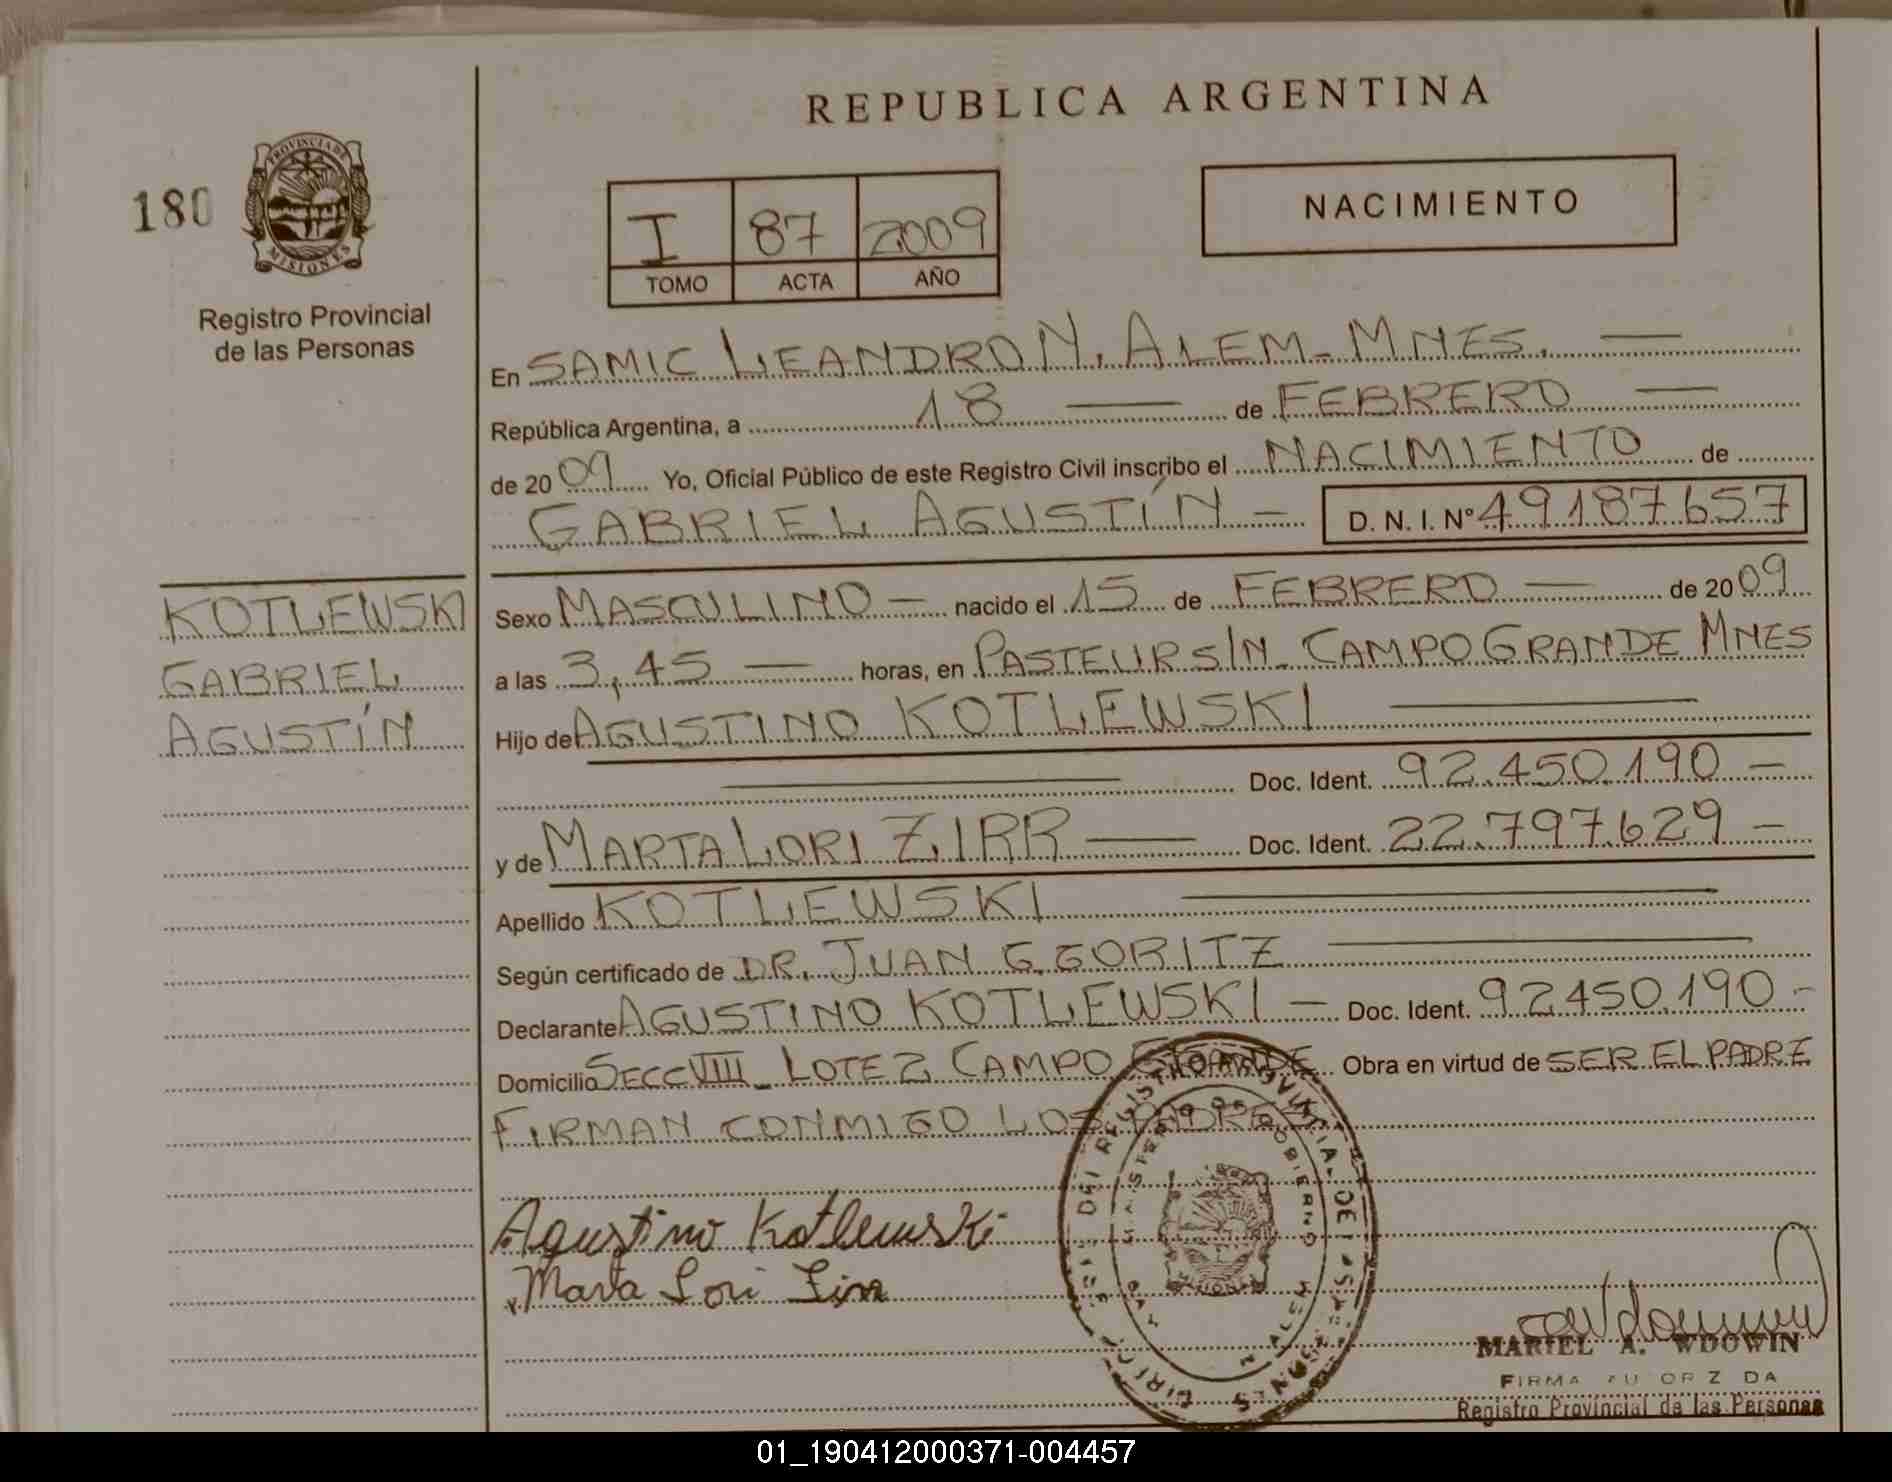 REPUBLICA ARGENTINA
180
PROVINCIA DE
MISIONES
Registro Provincial
de las Personas
I 87 2009
TOMO ACTA AÑO
NACIMIENTO
En SAMIC LEANDRO N. ALEM - MNES. —
República Argentina, a 18 — de FEBRERO —
de 2009 Yo, Oficial Público de este Registro Civil inscribo el NACIMIENTO de
GABRIEL AGUSTÍN — D. N. I. Nº 49187.657
KOTLEWSKI
GABRIEL
AGUSTÍN
Sexo MASCULINO — nacido el 15 de FEBRERO — de 2009
a las 3,45 — horas, en PASTEUR S/N - CAMPO GRANDE MNES
Hijo de AGUSTINO KOTLEWSKI —
— Doc. Ident. 92.450.190 —
y de MARTA LORI ZIRR — Doc. Ident. 22.797.629 —
Apellido KOTLEWSKI —
Según certificado de DR. JUAN G. GORITZ —
Declarante AGUSTINO KOTLEWSKI — Doc. Ident. 92450.190 -
Domicilio SECC VIII - LOTE 2 CAMPO GRANDE Obra en virtud de SER EL PADRE
FIRMAN CONMIGO LOS PADRES
Agustino Kotlewski
Marta Lori Zirr
MARIEL A. WDOWIN
Registro Provincial de las Personas
01_190412000371-004457